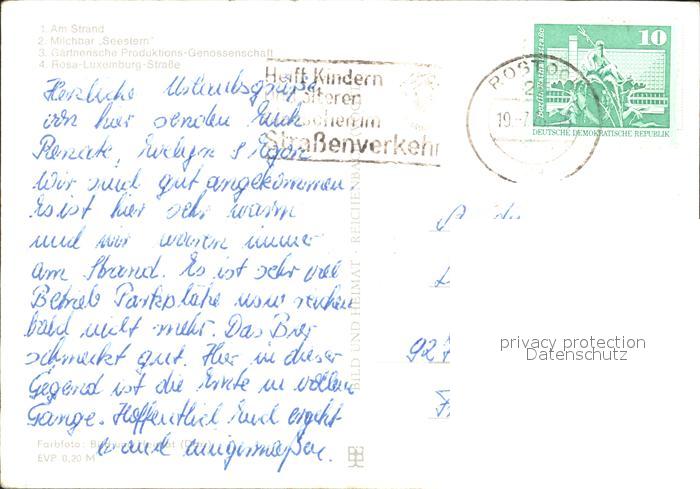 1. Am Strand
2. Milchbar „Seestern"
3. Gärtnerische Produktions-Genossenschaft
4. Rosa-Luxemburg-Straße
Helft Kindern
älteren
Menschen im
Straßenverkehr
ROSTOCK
10
Berlin, Rathausstraße
DEUTSCHE DEMOKRATISCHE REPUBLIK
Herzliche Urlaubsgrüße
von hier senden Euch
Renate, Evelyn & Egon
Wir sind gut angekommen
Es ist hier sehr warm
und wir waren immer
am Strand. Es ist sehr viel
Betrieb Parkplätze usw reichen
bald nicht mehr. Das Bier
schmeckt gut. Hier in dieser
Gegend ist die Ernte in vollem
Gange. Hoffentlich Euch ergeht
es auch einigermaßen.
BILD UND HEIMAT REICHENBACH
Farbfoto: Bild und Heimat
EVP 0,20 M
92
privacy protection
Datenschutz